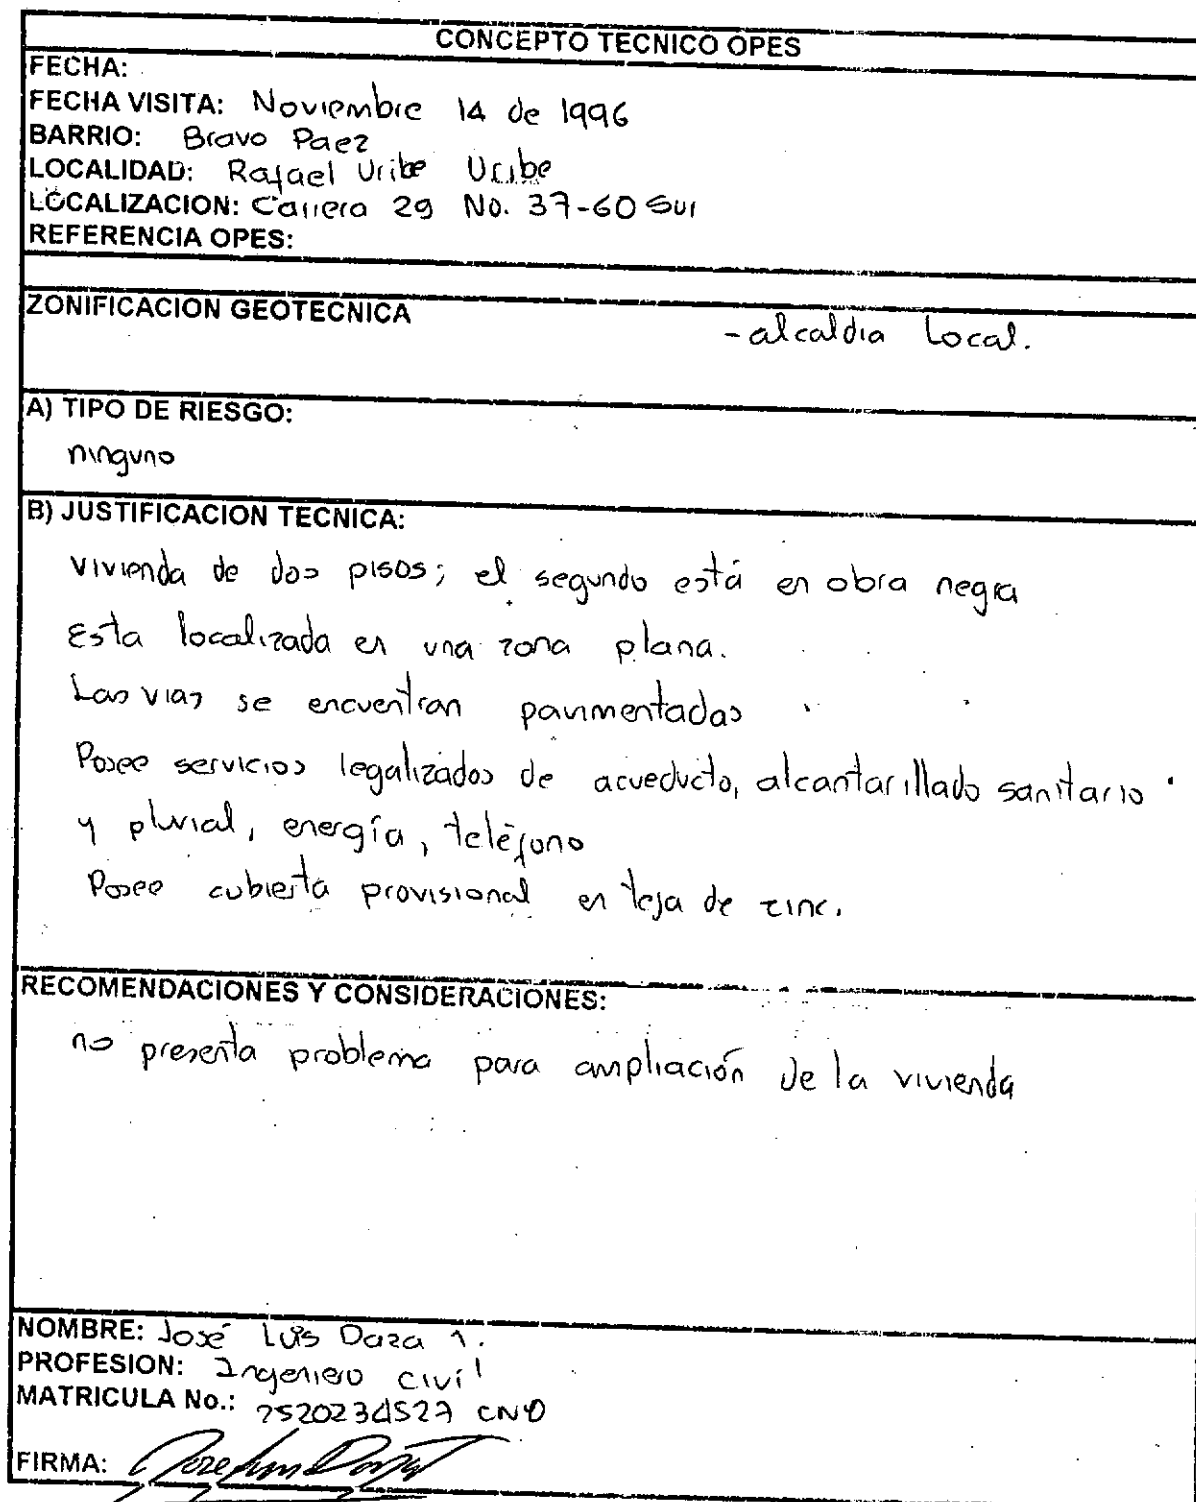 CONCEPTO TECNICO OPES
FECHA:
FECHA VISITA: Noviembre 14 de 1996
BARRIO: Bravo Paez
LOCALIDAD: Rafael Uribe Uribe
LOCALIZACION: Carrera 29 No. 37-60 Sur
REFERENCIA OPES:
ZONIFICACION GEOTECNICA
- alcaldia Local.
A) TIPO DE RIESGO:
ninguno
B) JUSTIFICACION TECNICA:
vivienda de dos pisos; el segundo está en obra negra
Esta localizada en una zona plana.
Las vias se encuentran pavimentadas
Posee servicios legalizados de acueducto, alcantarillado sanitario
y pluvial, energía, teléfono
Posee cubierta provisional en teja de zinc.
RECOMENDACIONES Y CONSIDERACIONES:
no presenta problema para ampliación de la vivienda
NOMBRE: José Luis Daza
PROFESION: Ingeniero Civil
MATRICULA No.:
FIRMA: